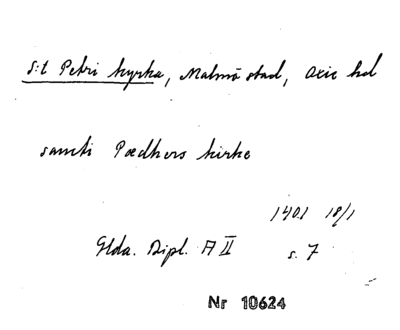 S:t Petri kyrka, Malmö stad, Oxie hd
sancti Pædhers kirke
1401 18/1
Glda. Dipl. A II s. 7
Nr 10624